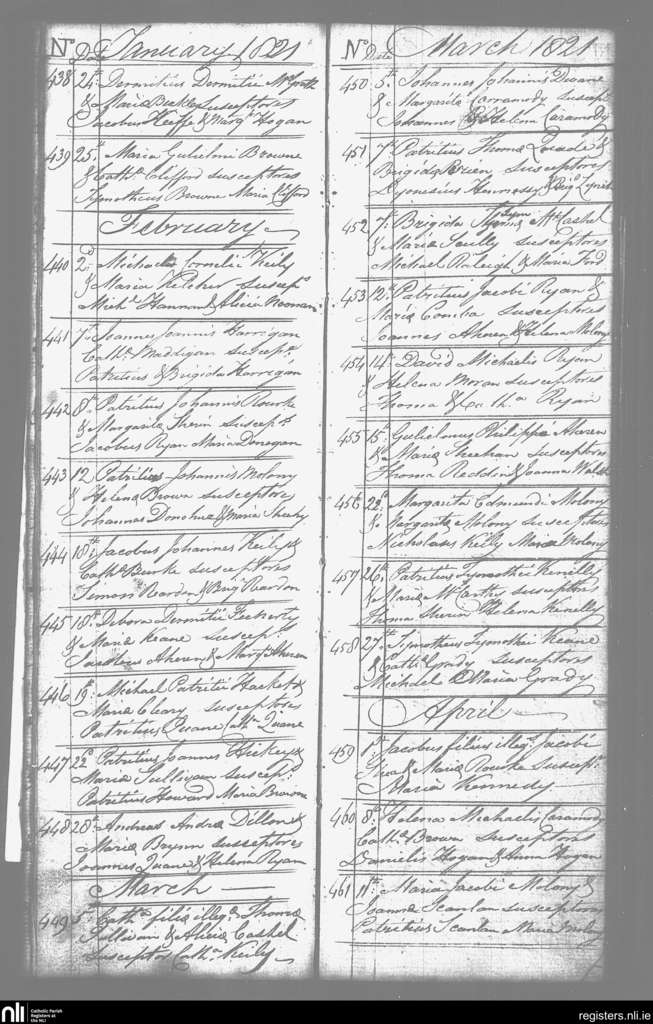 No Date January 1821
438 24th Dermitius Dermitii McGrath
& Maria Buckley susceptores
Jacobus Keeffe & Margt Hogan
439 25th Maria Gulielmi Browne
& Cathe Clifford susceptores
Tymotheus Browne Maria Clifford
February
440 2d Michael Cornelii Kiely
& Maria Kelcher susceps
Michl Hannan & Alicia Noonan
441 7th Joannes Joannis Harrigan
Cathe Maddigan suscepts
Patritius & Brigida Harrigan
442 8th Patritius Johannis Rourke
& Margarita Shein suscepts
Jacobus Ryan Maria Donegan
443 12 Patritius Johannis Molony
& Helena Brown susceptores
Johannes Donohue & Maria Sheehy
444 18th Jacobus Johannes Keily &
Cathe Burke susceptores
Simon Reardon & Brigt Reardon
445 18th Debora Dermitii Fecherty
& Maria Keane suscepts
Jacobus Aheren & Margt Aheren
446 19th Michael Patritii Hacket &
Maria Cleary susceptores
Patritius Quane Cathn Quane
447 22d Patritius Joannes Hickey &
Maria Sullivan suscepts
Patritius Howard Maria Browne
448 28th Andreas Andrea Dillon &
Maria Brynn susceptores
Joannes Quane & Helena Ryan
March
449 5th Catha filia illega Thoma
Sullivan & Alicia Cashel
susceptor Catha Keily
No Date March 1821
450 5th Johannes Johannis Dwane
& Margarita Carramody suscepts
Johannes & Helena Caramody
451 7th Patritius Thoma &
Brigida Brien susceptores
Dyonesius Hennessy & Brigd Lynch
452 7th Brigida Cashel
& Maria Scully susceptores
Michael Raleigh & Maria Ford
453 12th Patritius Jacobi Ryan &
Maria Comba susceptores
Joannes Aheren & Helena Molony
454 14th David Michaelis Ryan
& Helena Moran susceptores
Thoma & Catha Ryan
455 15th Gulielmus Philippi Aheren
& Maria Sheehan susceptores
Thoma Reddin & Joanna Walsh
456 22d Margarita Edmundi Molony
& Margarita Molony susceptores
Nicholaus Keily Maria Molony
457 26th Patritius Tymothei Kenelly
& Maria McCarthy susceptores
Thoma Sherin & Helena Kenelly
458 27th Tymotheus Tymothei Keane
& Catha Grady susceptores
Michael & Maria Grady
April
459 1st Jacobus filius illegs Jacobi
& Maria Rourke suscepts
Maria Kennedy
460 8th Helena Michaelis Caramody
Catha Brown susceptores
Danielis Hogan & Anna Hogan
461 11th Maria Jacobi Molony &
Joanna Scanlan susceptores
Patritius Scanlan Maria Molony
nli Catholic Parish
Registers at
the NLI
registers.nli.ie